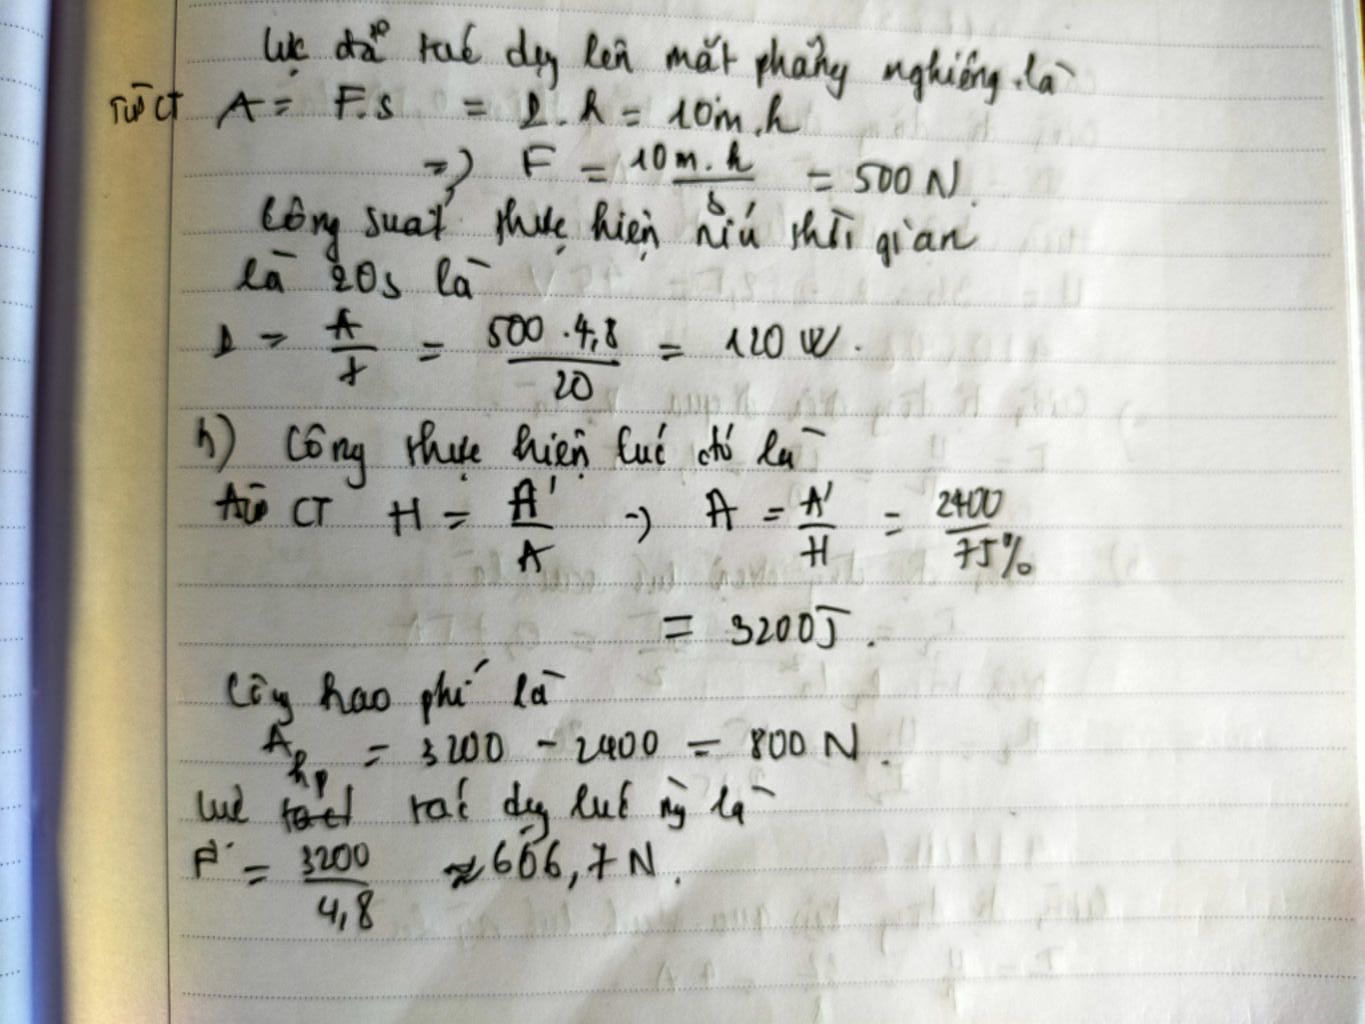 lực để tác dụng lên mặt phẳng nghiêng là
Từ CT A = F.s = P.h = 10m.h
=> F = 10m.h / s = 500N.
Công suất thực hiện nếu thời gian
là 20s là
P = A / t = 500.4,8 / 20 = 120W.
b) Công thực hiện lúc đó là
Từ CT H = A' / A -> A = A' / H = 2400 / 75%
= 3200J.
Công hao phí là
Ahp = 3200 - 2400 = 800N.
lực tác dụng lúc này là
F' = 3200 / 4,8 ≈ 666,7N.